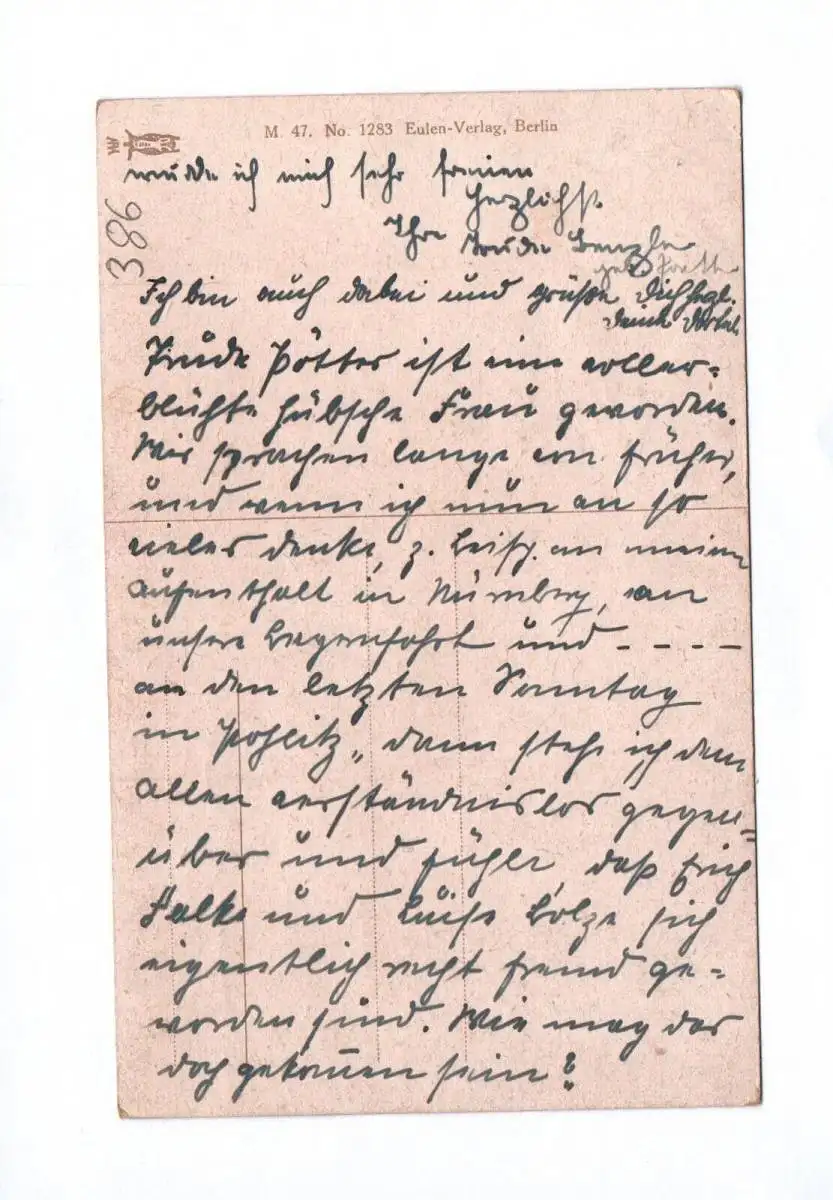 M. 47. No. 1283 Eulen-Verlag, Berlin
386
würde ich mich sehr freuen
Herzlichst
Ihre Trude
geb.
Ich bin auch dabei und grüße Dich herzl.
Deine
Trude Pötter ist eine voller-
blühte hübsche Frau geworden.
Wir sprachen lange von früher,
und wenn ich nun an so
vieles denke, z. Beisp. an meinen
Aufenthalt in Nürnberg, an
unsere und - - - -
an den letzten Sonntag
in Pohlitz, dann stehe ich dem
allen verständnislos gegen=
über und fühle, daß Erich
Falke und Luise Bolze sich
eigentlich recht fremd ge-
worden sind. Wie mag das
doch gekommen sein?